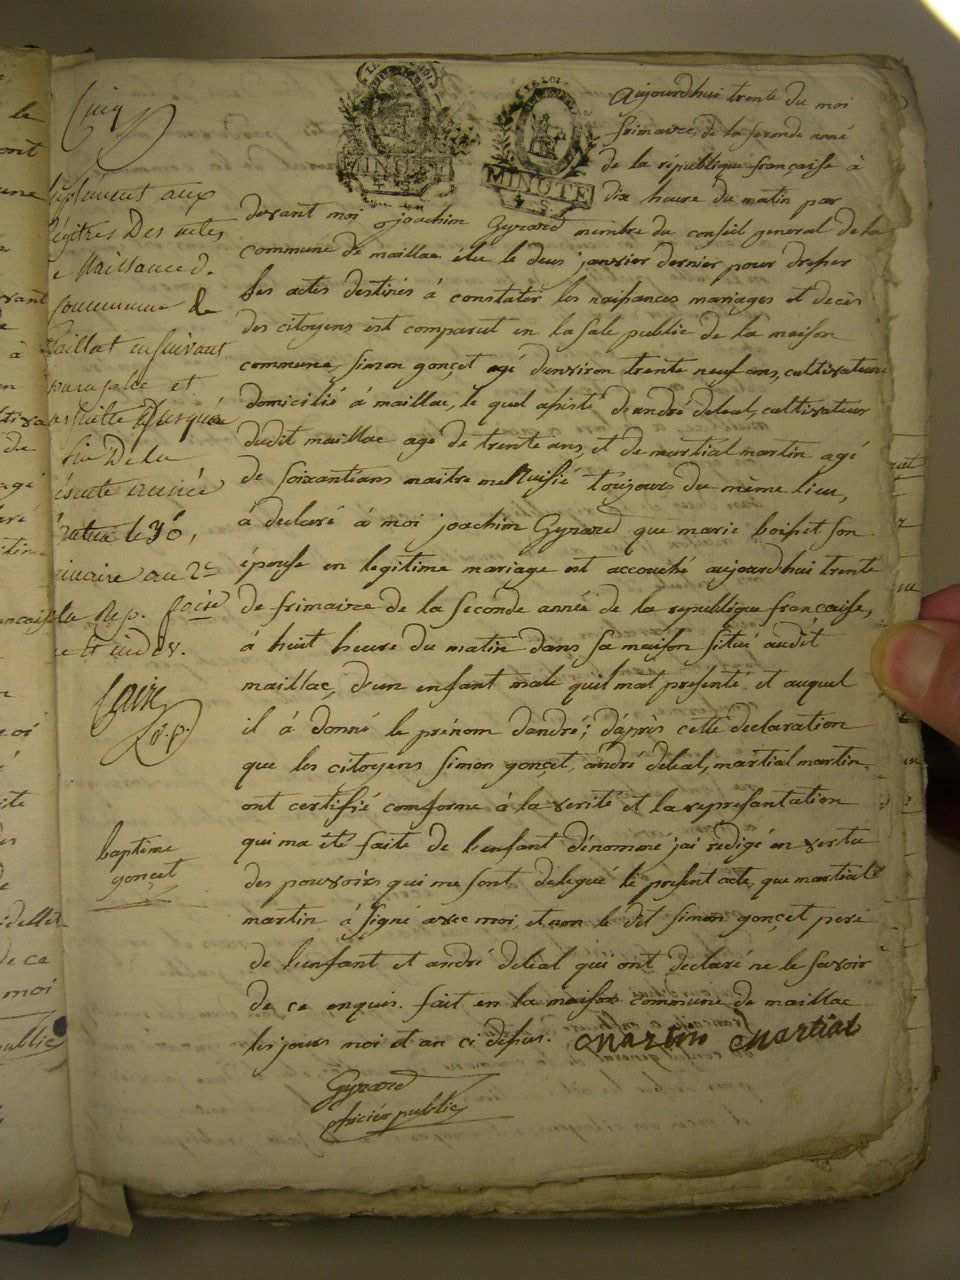 Cinq
LA LOI
MINUTE
4 S.
LA LOI
MINUTE
4 S.
Aujourdhui trente du moi
frimaire, de la seconde anné
de la république francaise à
dix heure du matin par
devant moi joachim Gyrard membre du conseil general de la
commune de maillac élu le deux janvier dernier pour dresser
les actes destinés à constater les naissances mariages et decès
des citoyens est comparut en la sale public de la maison
commune, simon gonçet agé d'environ trente neuf ans, cultivateur
domicilié à maillac, le quel assisté d'andré deleal, cultivateur
dudit maillac age de trente ans, et de martial martin agé
de soixant ans maitre toujours du même lieu,
à declaré à moi joachim Gyrard que marie boisset son
épouse en legitime mariage est accouché aujourdhui trente
de frimaire de la seconde année de la republique francaise,
à huit heure du matin dans sa maison situé audit
maillac, d'un enfant male quil mat presenté et auquel
il à donné le prénom dandré; d'après cette declaration
que les citoyens simon gonçet, andré deleal, martial martin
ont certifié comforme à la verité et la represantation
qui ma été faite de l'enfant dénommé jai rédigé en vertu
des pouvoirs qui me sont delegué le present acte, que martial
martin à signé avec moi, et non le dit simon gonçet pere
de l'enfant et andré deleal qui ont declaré ne le savoir
de ce enquis. fait en la maison commune de maillac
les jours moi et an ci dessus. Martin Martial
Gyrard
officier public
suplément aux
Régitres Des actes
de Naissance d.
Commune de
Maillat ensuivant
paraphe et
fin De la
présente année
le 30,
frimaire an 2e
de la Rep. foise
une et indiv.
baptême
gonçet